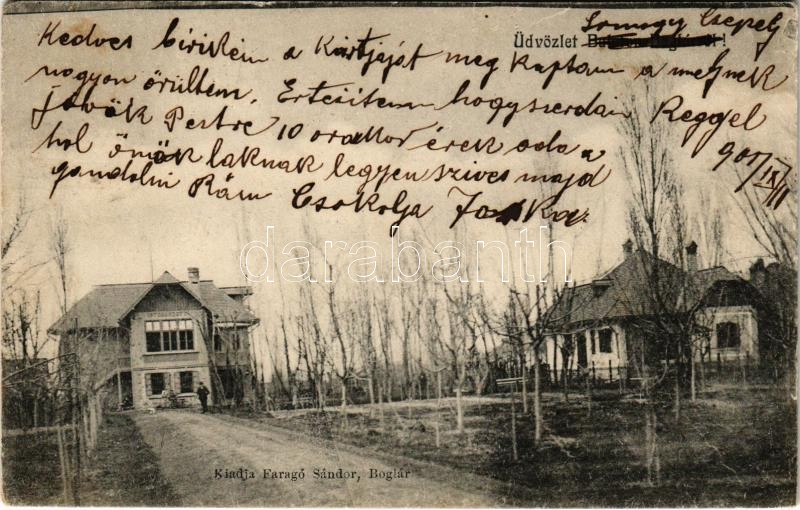 Somogy Csepely
Üdvözlet Balaton-Boglárról!
Kedves birikém a Kártjáját meg kaptam a melynek
nagyon örültem. Értesitem hogy szerdán Reggel
jövök Pestre 10 orakor érek oda a
hol önök laknak legyen szives majd
gandolni Rám Csokolja Jos Ka
901/IX/11
darabanth
Kiadja Faragó Sándor, Boglár